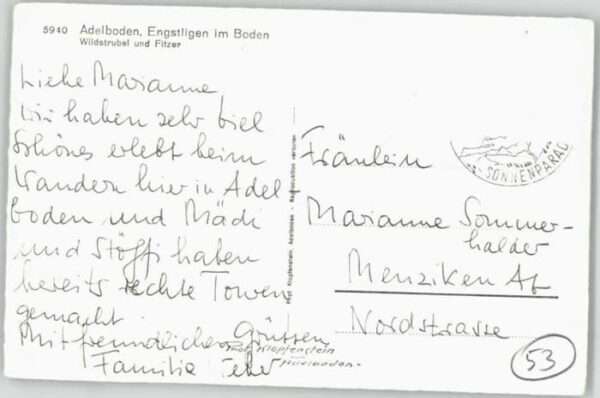 5940 Adelboden, Engstligen im Boden
Wildstrubel und Fitzer
Liebe Marianne,
Wir haben sehr viel
Schönes erlebt beim
Wandern hier in Adel-
boden und Mädi
und Stöffi haben
bereits rechte Touren
gemacht.
Mit freundlichen Grüssen
Familie
Phot. Klopfenstein, Adelboden - Reproduktion verboten
Phot. Klopfenstein
Adelboden
SONNENPARAD
Fräulein
Marianne Sommer-
halder
Menziken Ag
Nordstrasse
53